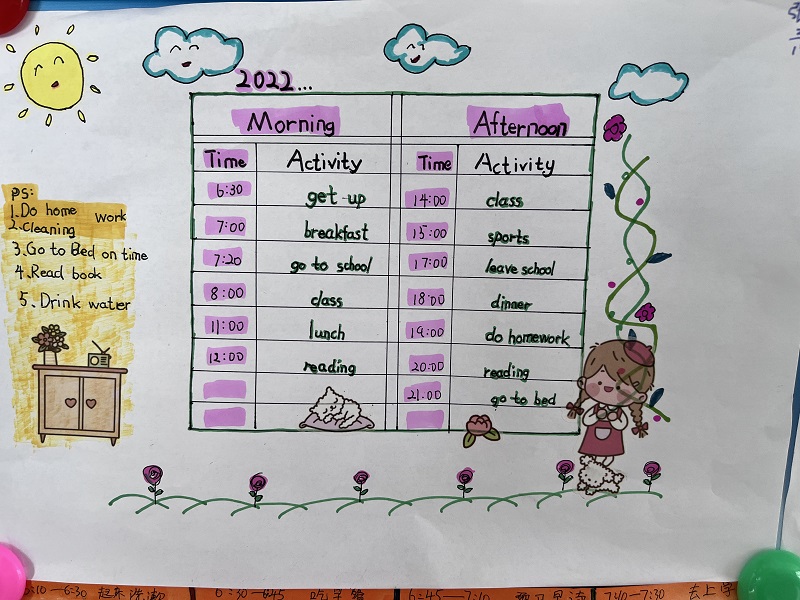 2022...
Morning Afternoon
Time Activity Time Activity
6:30 get up 14:00 class
7:00 breakfast 15:00 sports
7:20 go to school 17:00 leave school
8:00 class 18:00 dinner
11:00 lunch 19:00 do homework
12:00 reading 20:00 reading
21.00 go to bed
PS:
1.Do home work
2.Cleaning
3.Go to Bed on time
4.Read book
5.Drink water
6:10-6:30 起床洗漱 6:30-6:45 吃早餐 6:45-7:10 7:10-7:30 去上学